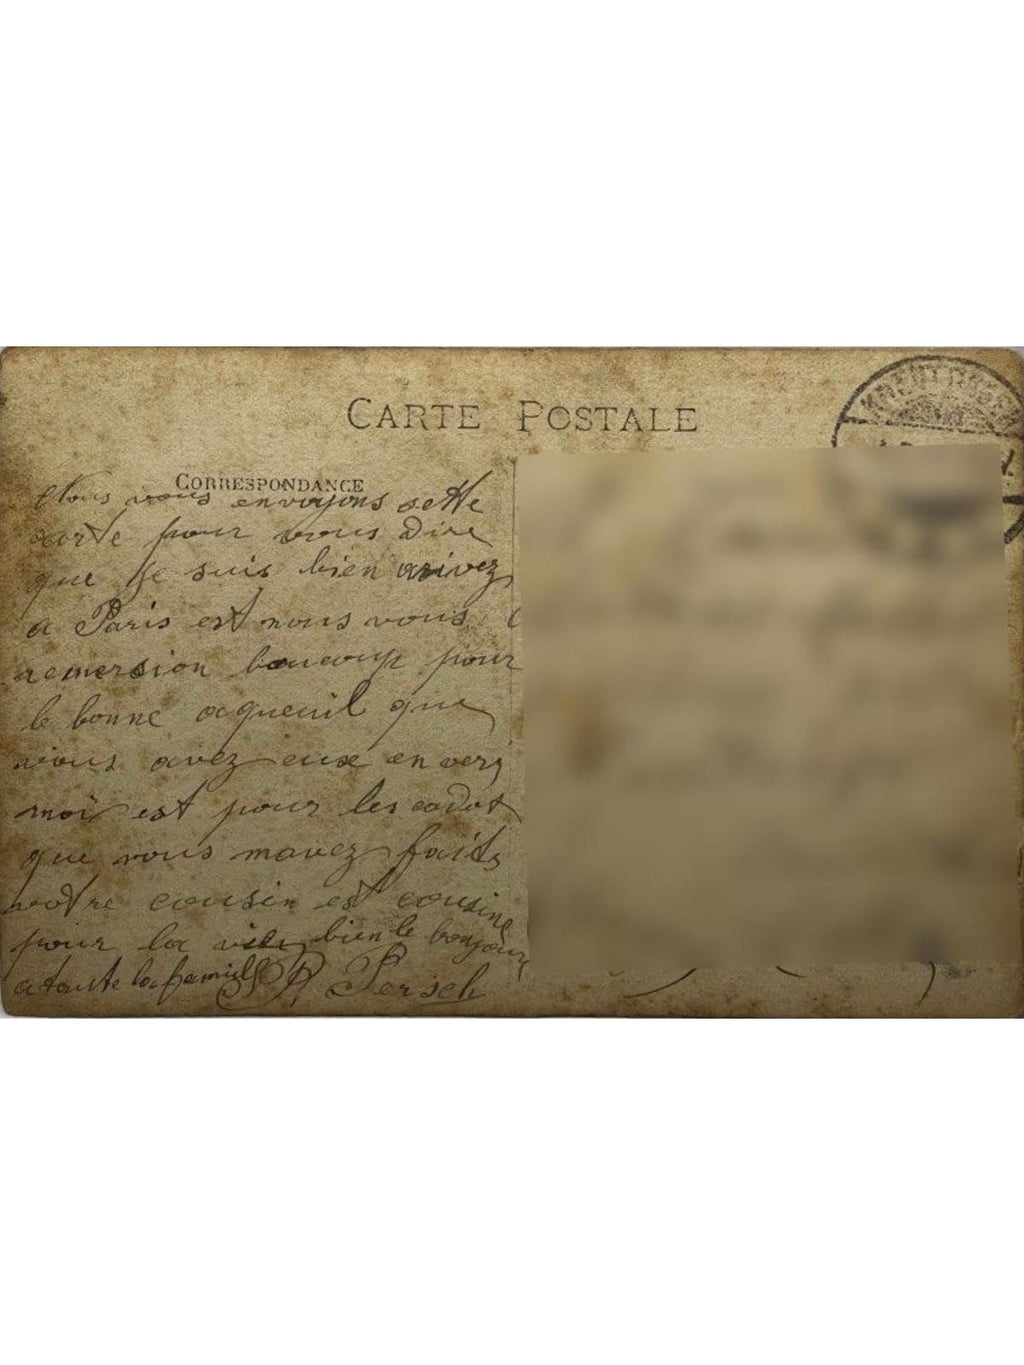 CARTE POSTALE
CORRESPONDANCE
Nous vous envoyons sette
carte pour vous dire
que je suis bien arivez
a Paris est nous vous
remersion boucoup pour
le bonne aqueuil que
vous avez eux en vers
moi est pour les cadot
que vous mavez faits
votre cousin est cousine
pour la vie bien le bonjour
a toute la famille Persch